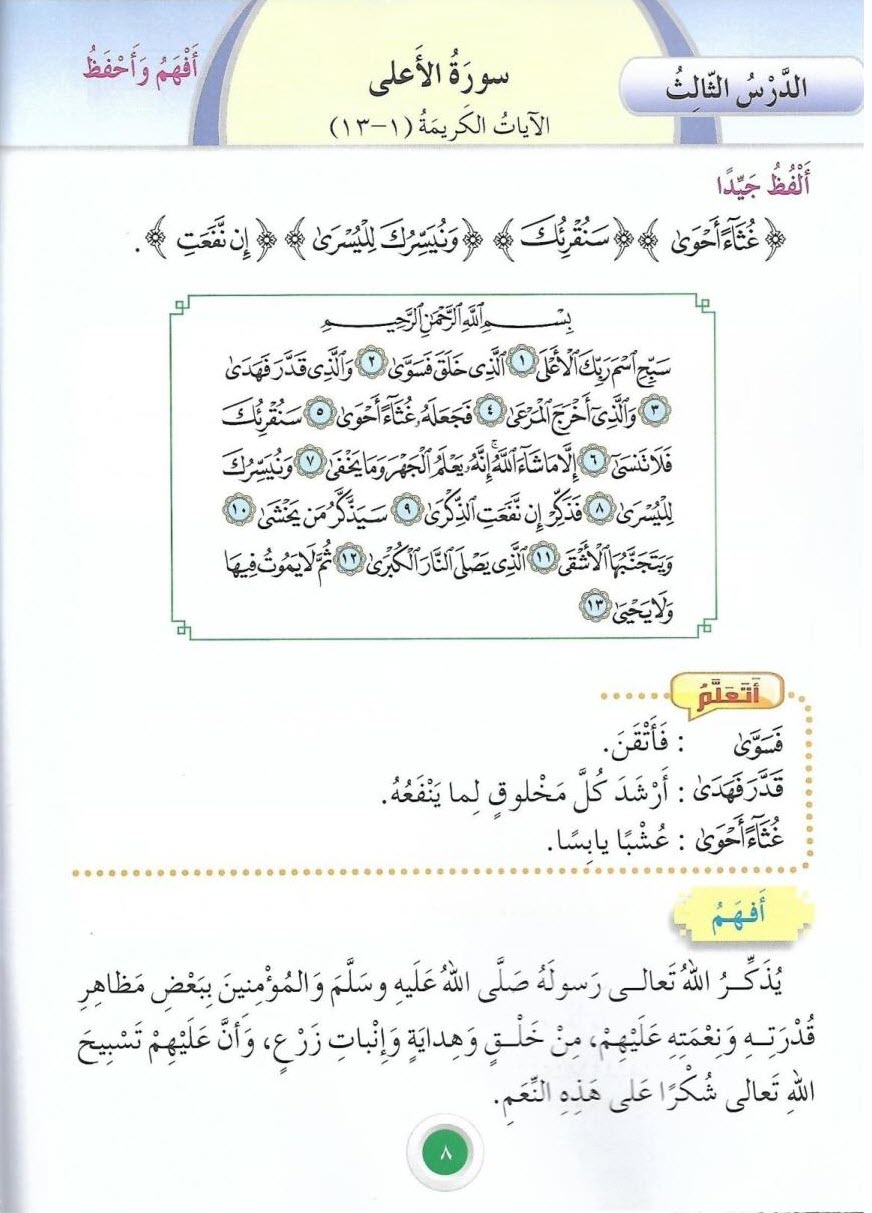 الدَّرْسُ الثّالِثُ
سورَةُ الأَعلى
الآياتُ الكَريمَةُ (١-١٣)
أَفْهَمُ وَأَحْفَظُ
أَلْفُظُ جَيِّدًا
﴿ غُثَآءً أَحْوَىٰ ﴾ ﴿ سَنُقْرِئُكَ ﴾ ﴿ وَنُيَسِّرُكَ لِلْيُسْرَىٰ ﴾ ﴿ إِن نَّفَعَتِ ﴾ .
بِسْمِ ٱللَّهِ ٱلرَّحْمَٰنِ ٱلرَّحِيمِ
سَبِّحِ ٱسْمَ رَبِّكَ ٱلْأَعْلَى ١ ٱلَّذِى خَلَقَ فَسَوَّىٰ ٢ وَٱلَّذِى قَدَّرَ فَهَدَىٰ
٣ وَٱلَّذِىٓ أَخْرَجَ ٱلْمَرْعَىٰ ٤ فَجَعَلَهُۥ غُثَآءً أَحْوَىٰ ٥ سَنُقْرِئُكَ
فَلَا تَنسَىٰٓ ٦ إِلَّا مَا شَآءَ ٱللَّهُۚ إِنَّهُۥ يَعْلَمُ ٱلْجَهْرَ وَمَا يَخْفَىٰ ٧ وَنُيَسِّرُكَ
لِلْيُسْرَىٰ ٨ فَذَكِّرْ إِن نَّفَعَتِ ٱلذِّكْرَىٰ ٩ سَيَذَّكَّرُ مَن يَخْشَىٰ ١٠
وَيَتَجَنَّبُهَا ٱلْأَشْقَى ١١ ٱلَّذِى يَصْلَى ٱلنَّارَ ٱلْكُبْرَىٰ ١٢ ثُمَّ لَا يَمُوتُ فِيهَا
وَلَا يَحْيَىٰ ١٣
أَتَعَلَّمُ
فَسَوَّىٰ : فَأَتْقَنَ.
قَدَّرَ فَهَدَىٰ : أَرْشَدَ كُلَّ مَخْلوقٍ لِما يَنْفَعُهُ.
غُثَآءً أَحْوَىٰ : عُشْبًا يابِسًا.
أَفهَمُ
يُذَكِّـرُ اللهُ تَعالـى رَسولَهُ صَلَّى اللهُ عَلَيهِ وسَلَّمَ وَالمُؤْمِنينَ بِبَعْضِ مَظاهِرِ
قُدْرَتِـهِ وَنِعْمَتِهِ عَلَيْهِمْ، مِنْ خَلْـقٍ وَهِدايَةٍ وَإِنْباتِ زَرْعٍ، وَأَنَّ عَلَيْهِمْ تَسْبِيحَ
اللهِ تَعالى شُكْرًا عَلى هَذِهِ النِّعَمِ.
٨